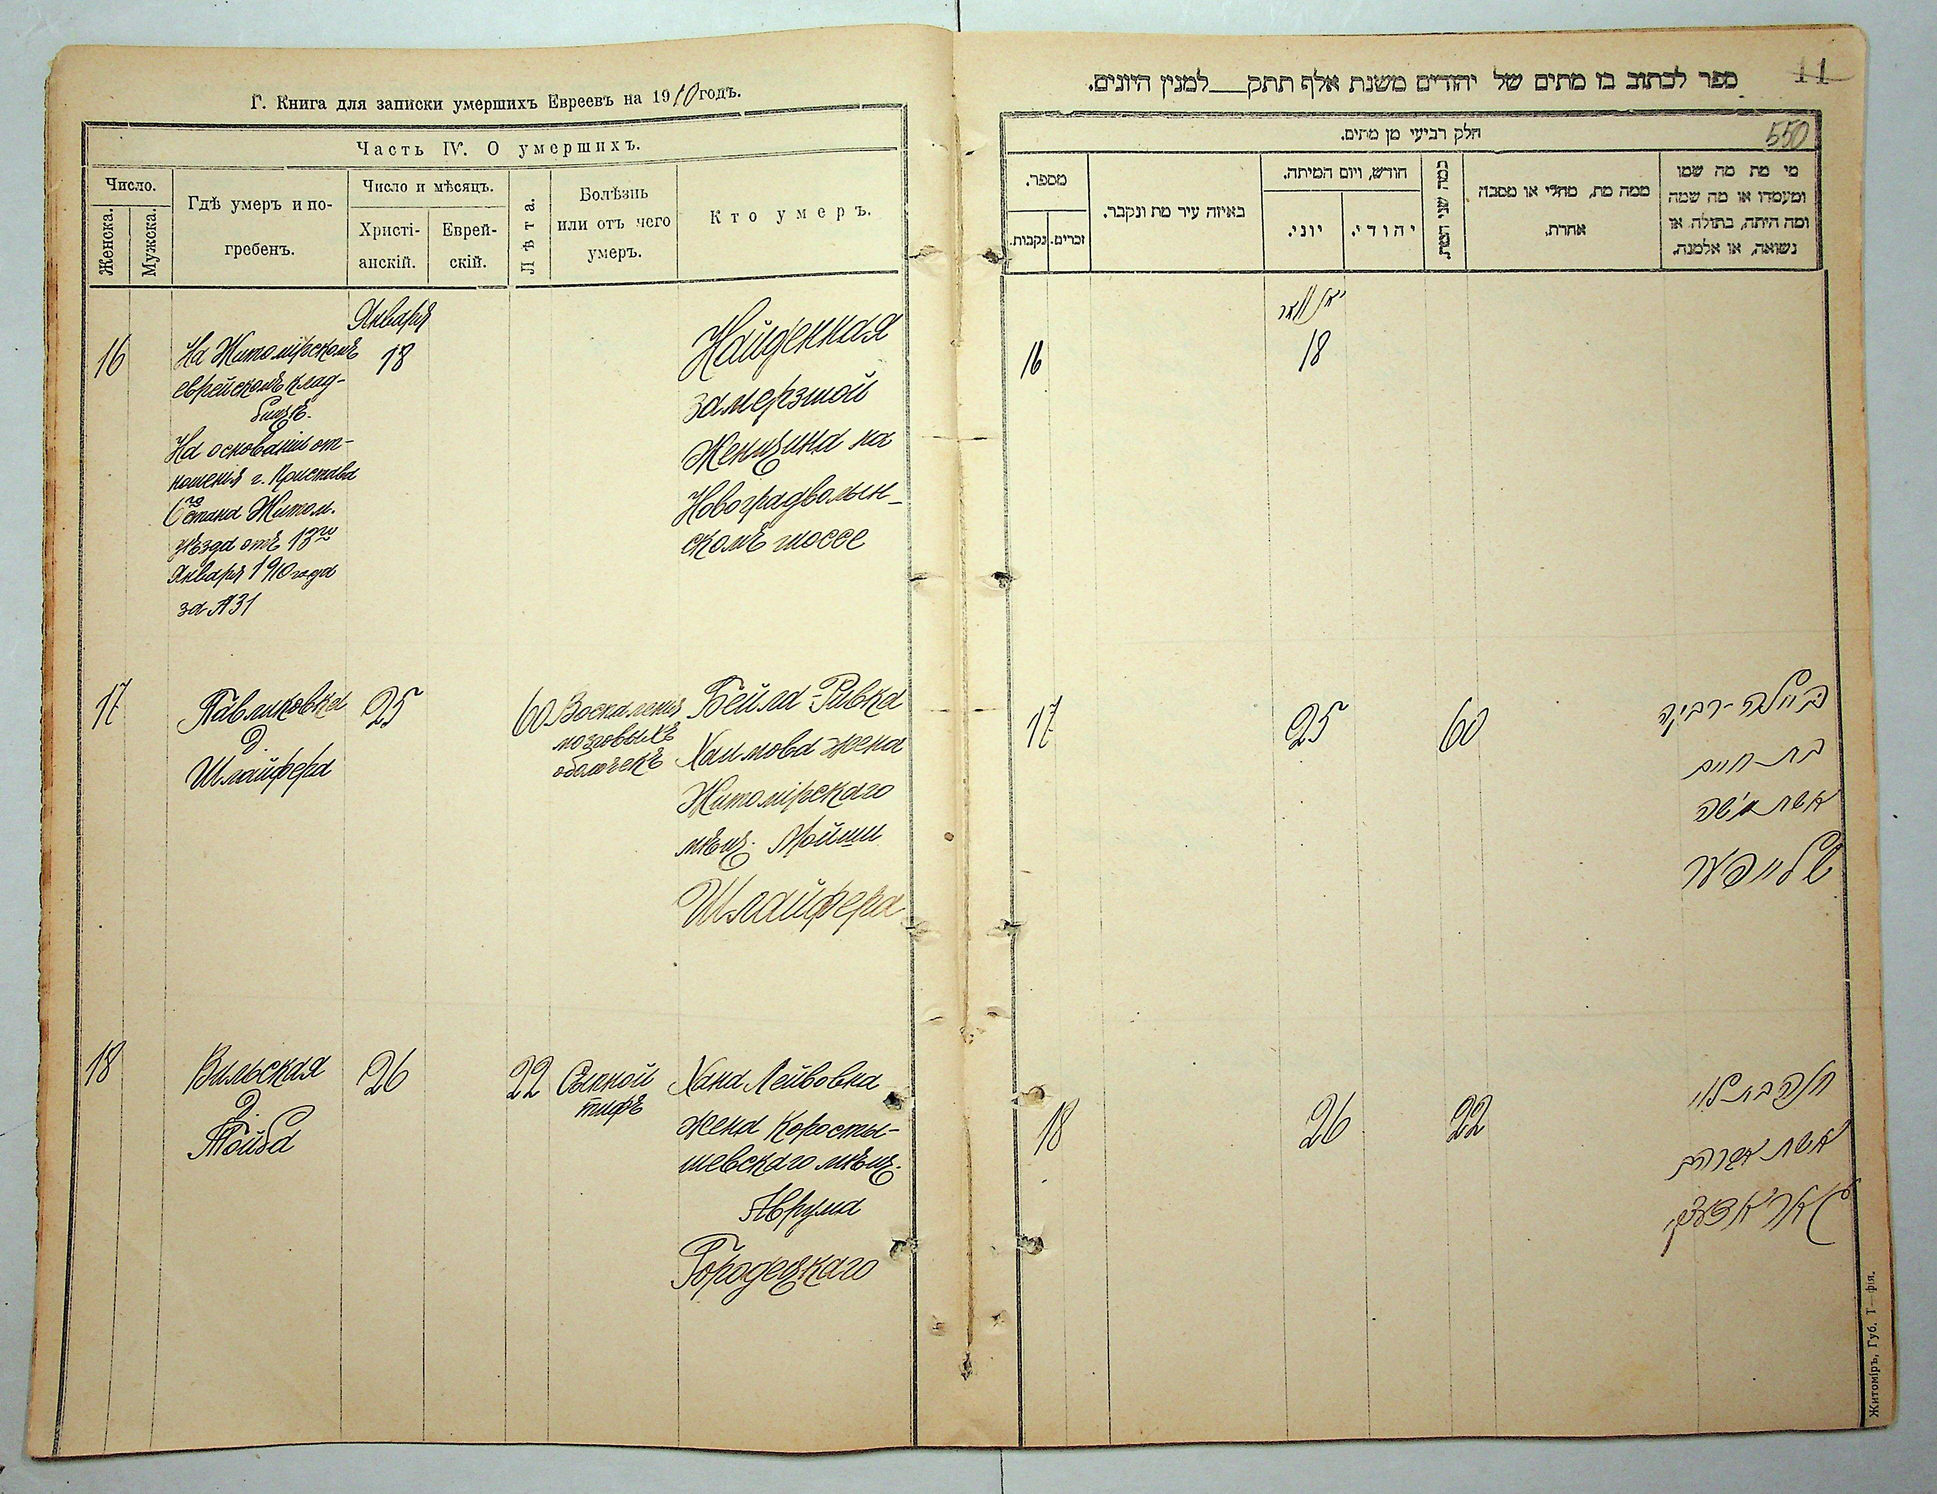 Г. Книга для записки умершихъ Евреевъ на 1910 годъ.
Часть IV. О умершихъ.
Число.
Женска.
Мужска.
Гдѣ умеръ и по-
гребенъ.
Число и мѣсяцъ.
Христі-
анскій.
Еврей-
скій.
Лѣта.
Болѣзнь
или отъ чего
умеръ.
Кто умеръ.
Января
16
На Житомірскомъ
еврейскомъ клад-
бищѣ.
На основаніи от-
ношенія г. Пристава
6го стана Житом.
уѣзда отъ 13го
Января 1910 года
за №31
18
Найденная
замерзшой
женщина на
Новоградволын-
скомъ шоссе
17
Павликовка
д
Шлайфера
25
60
Воспаленія
мозговыхъ
оболочекъ
Бейла-Ривка
Хаимова жена
Житомірскаго
мѣщ. Мойши
Шлайфера
18
Вильская
д.
Гойба
26
22
Сыпной
тифъ
Хана Лейбовна
жена Коросты-
шевскаго мѣщ.
Аврума
Городецкаго
11
ספר לכתוב בו מתים של יהודים משנת אלף תתק___למנין היונים.
550
חלק רביעי מן מתים.
מספר.
נקבות.
זכרים.
באיזה עיר מת ונקבר.
חודש, ויום המיתה.
יוני.
יהודי.
כמה שני המת.
ממה מת, מחלי או מסבה
אחרת.
מי מת מה שמו
ומעמדו או מה שמה
ומה היתה, בתולה או
נשואה, או אלמנה.
יאנואר
16
18
17
25
60
ביילה-רבקה
בת חיים
אשת משה
שלייפער
18
26
22
חנה בת לייב
אשת אברהם
גאראדעצקי
Житоміръ, Губ. Т—фія.